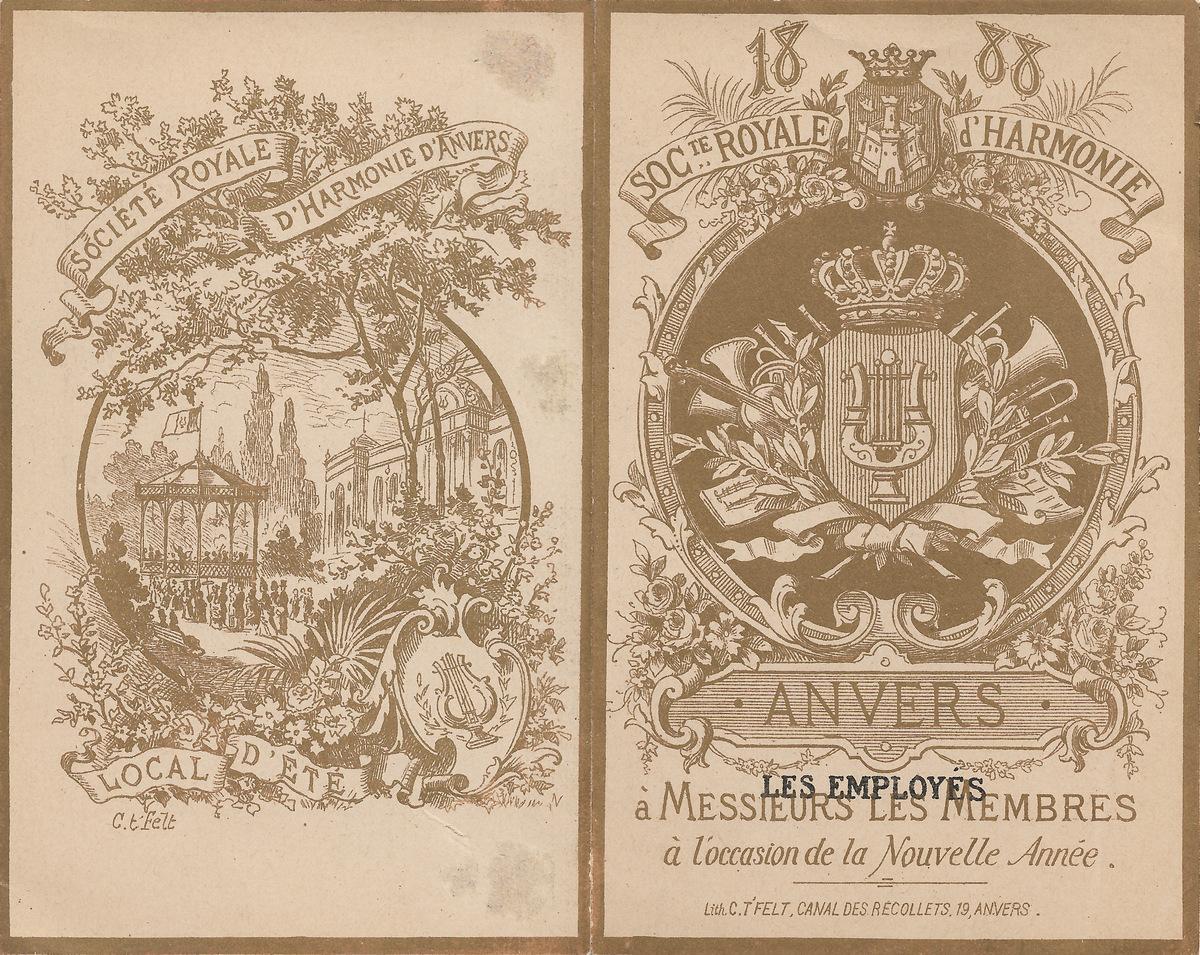 SOCIÉTÉ ROYALE
D'HARMONIE D'ANVERS
LOCAL D'ÉTÉ
C. t'Felt
1888
SOC.TE ROYALE d'HARMONIE
· ANVERS ·
LES EMPLOYÉS
à MESSIEURS LES MEMBRES
à l'occasion de la Nouvelle Année.
Lith. C. T'FELT, CANAL DES RÉCOLLETS, 19, ANVERS.